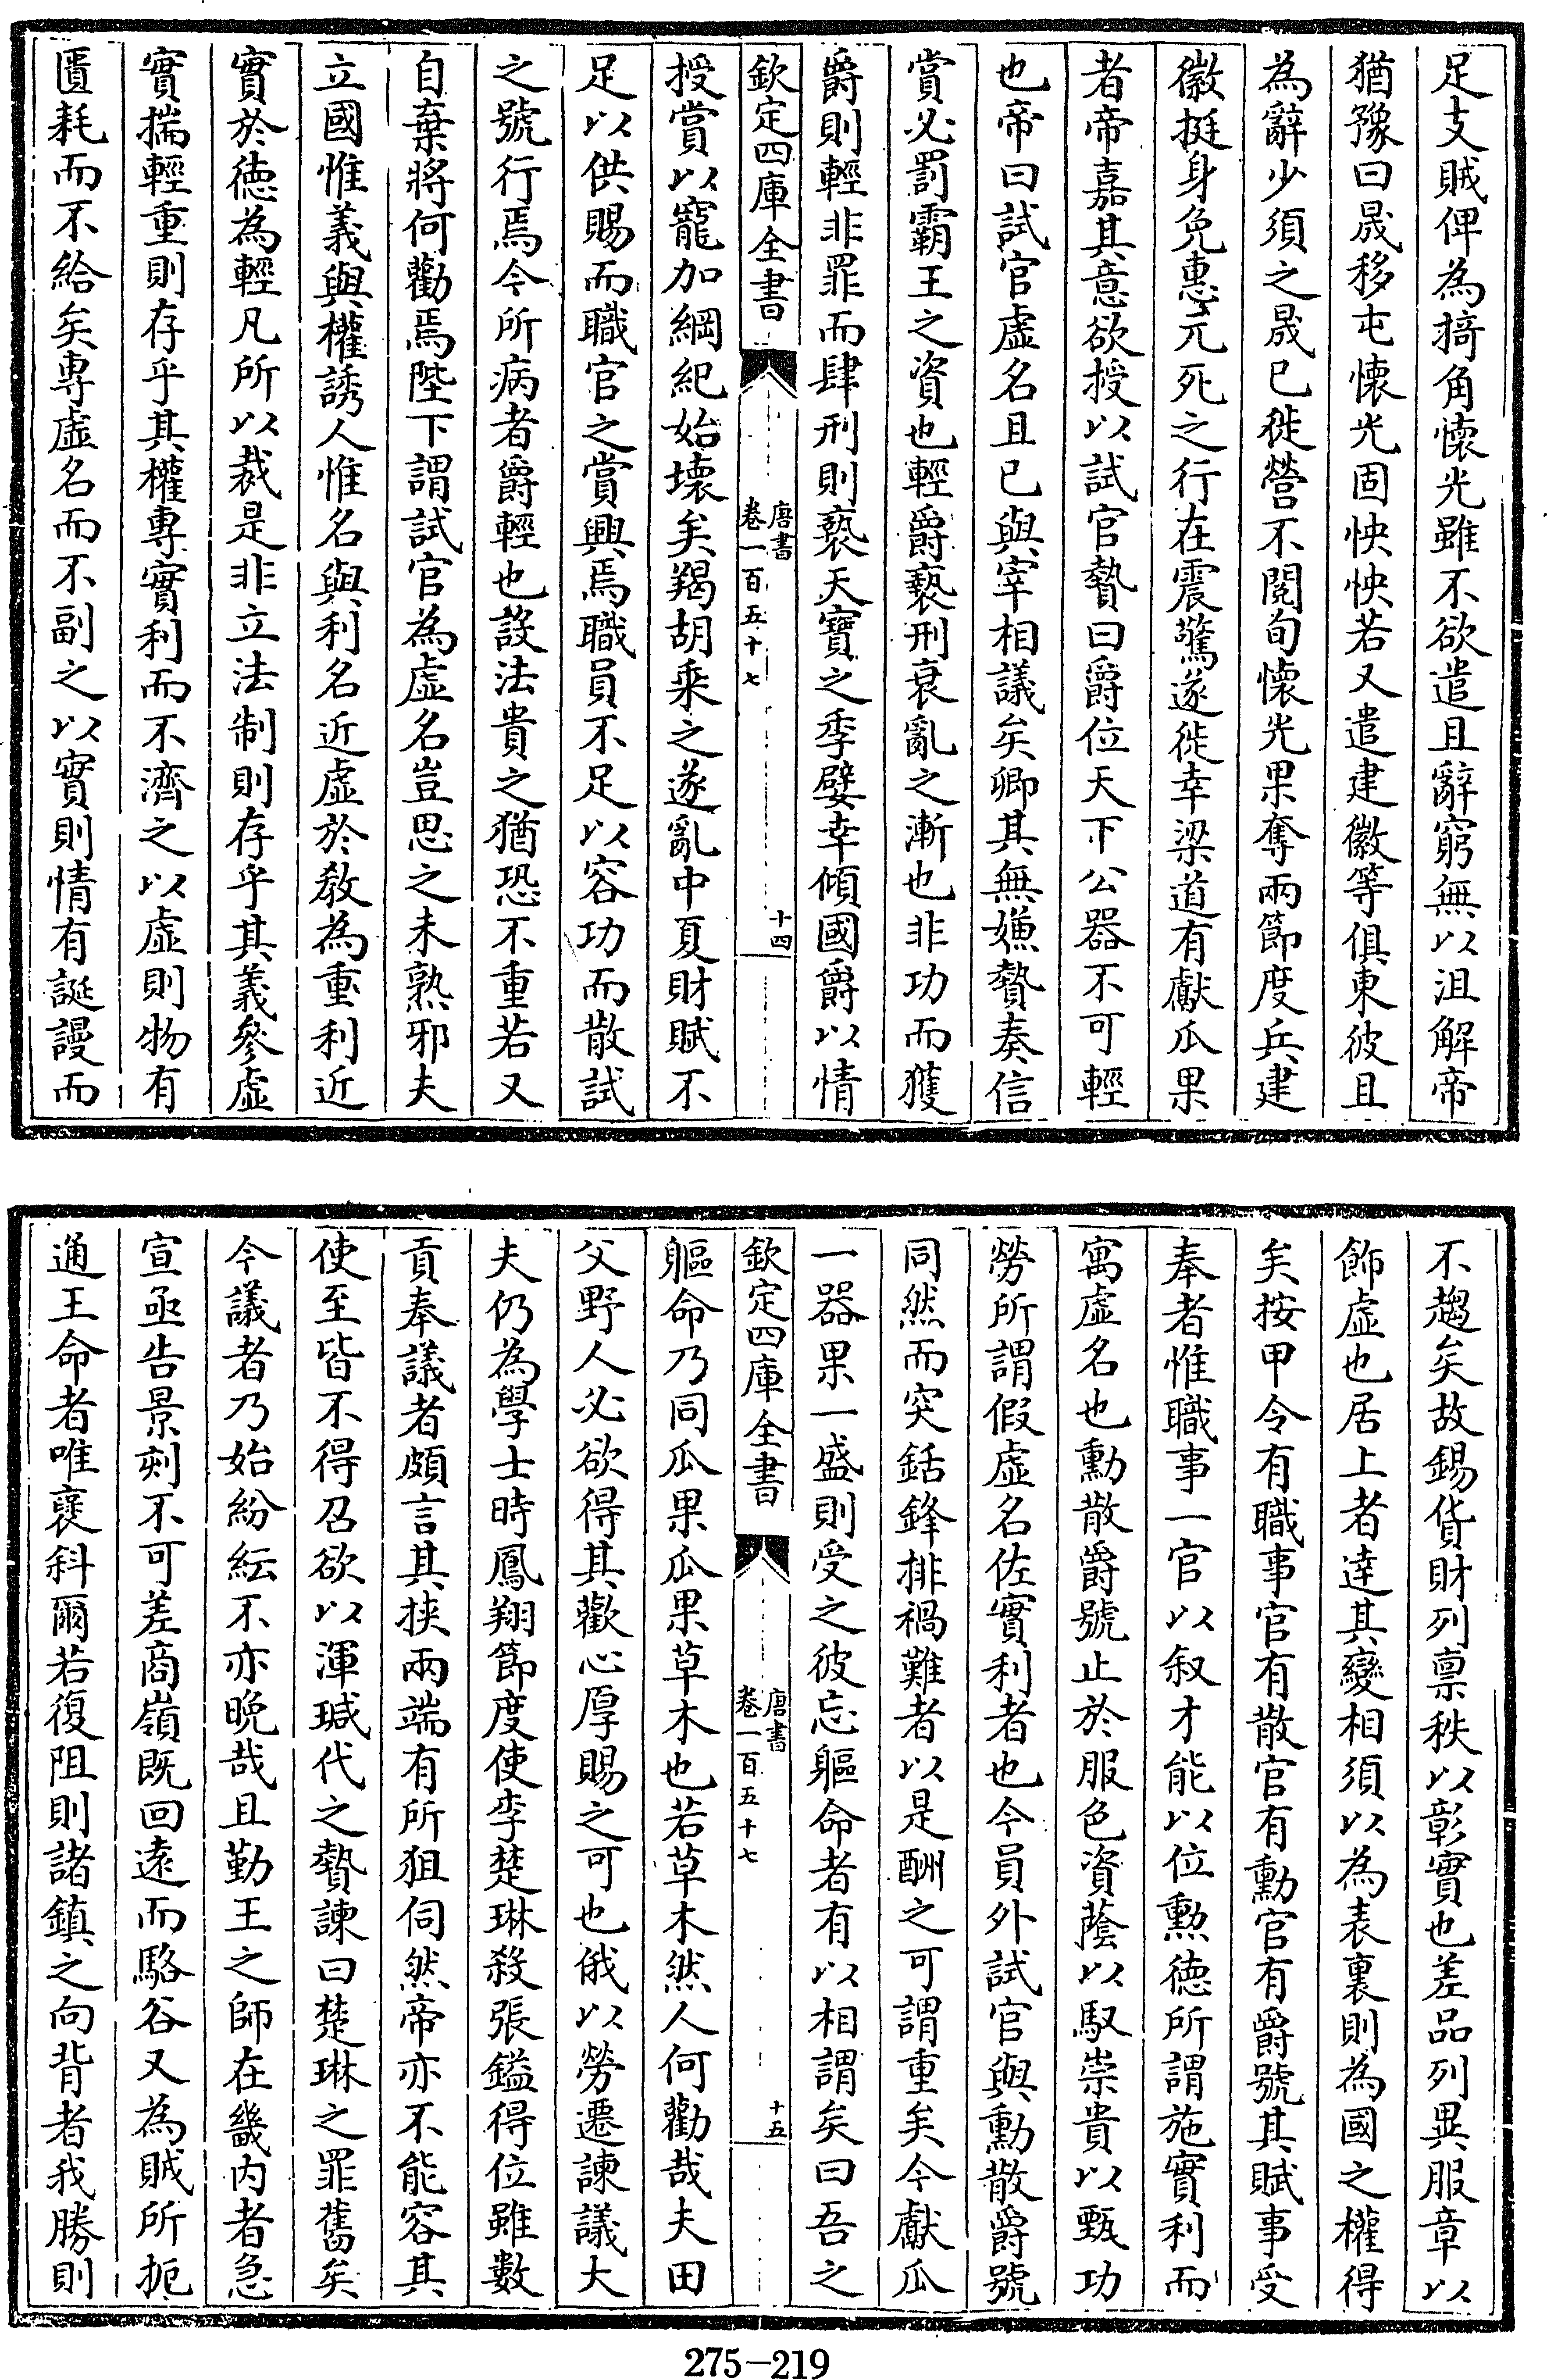 足支賊俾為掎角懷光雖不欲遣且辭窮無以沮解帝
猶豫曰晟移屯懷光固怏怏若又遣建徽等俱東彼且
為辭少須之晟已徙營不閱旬懷光果奪兩節度兵建
徽挺身免惠元死之行在震驚遂徙幸梁道有獻瓜果
者帝嘉其意欲授以試官贄曰爵位天下公器不可輕
也帝曰試官虛名且已與宰相議矣卿其無嫌贄奏信
賞必罰霸王之資也輕爵褻刑衰亂之漸也非功而獲
爵則輕非罪而肆刑則褻天寶之季嬖幸傾國爵以情
欽定四庫全書
唐書
卷一百五十七
十四
授賞以寵加綱紀始壞矣羯胡乘之遂亂中夏財賦不
足以供賜而職官之賞興焉職員不足以容功而散試
之號行焉今所病者爵輕也設法貴之猶恐不重若又
自棄將何勸焉陛下謂試官為虛名豈思之未熟邪夫
立國惟義與權誘人惟名與利名近虛於教為重利近
實於德為輕凡所以裁是非立法制則存乎其義參虛
實揣輕重則存乎其權專實利而不濟之以虛則物有
匱耗而不給矣專虛名而不副之以實則情有誕謾而
不趨矣故錫貨財列禀秩以彰實也差品列異服章以
飾虛也居上者達其變相須以為表裏則為國之權得
矣按甲令有職事官有散官有勳官有爵號其賦事受
奉者惟職事一官以叙才能以位勲德所謂施實利而
寓虛名也勳散爵號止於服色資蔭以馭崇貴以甄功
勞所謂假虛名佐實利者也今員外試官與勳散爵號
同然而突銛鋒排禍難者以是酬之可謂重矣今獻瓜
一器果一盛則受之彼忘軀命者有以相謂矣曰吾之
欽定四庫全書
唐書
卷一百五十七
十五
軀命乃同瓜果瓜果草木也若草木然人何勸哉夫田
父野人必欲得其歡心厚賜之可也俄以勞遷諫議大
夫仍為學士時鳳翔節度使李楚琳殺張鎰得位雖數
貢奉議者頗言其挾兩端有所狙伺然帝亦不能容其
使至皆不得召欲以渾瑊代之贄諫曰楚琳之罪舊矣
今議者乃始紛紜不亦晚哉且勤王之師在畿内者急
宣亟告景刻不可差商嶺既回遠而駱谷又為賊所扼
通王命者唯襃斜爾若復阻則諸鎮之向背者我勝則
275-219